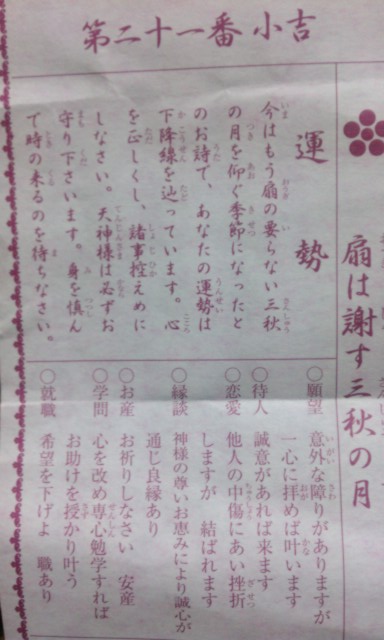 扇は謝す三秋の月
第二十一番 小吉
運勢
今はもう扇の要らない三秋
の月を仰ぐ季節になったと
のお詩で、あなたの運勢は
下降線を辿っています。心
を正しくし、諸事控えめに
しなさい。天神様は必ずお
守り下さいます。身を慎ん
で時の来るのを待ちなさい。
○願望 意外な障りがありますが
一心に拝めば叶います
○待人 誠意があれば来ます
○恋愛 他人の中傷にあい挫折
しますが 結ばれます
○縁談 神様の尊いお恵みにより誠心が
通じ良縁あり
○お産 お祈りしなさい 安産
○学問 心を改め専心勉学すれば
お助けを授かり叶う
○就職 希望を下げよ 職あり